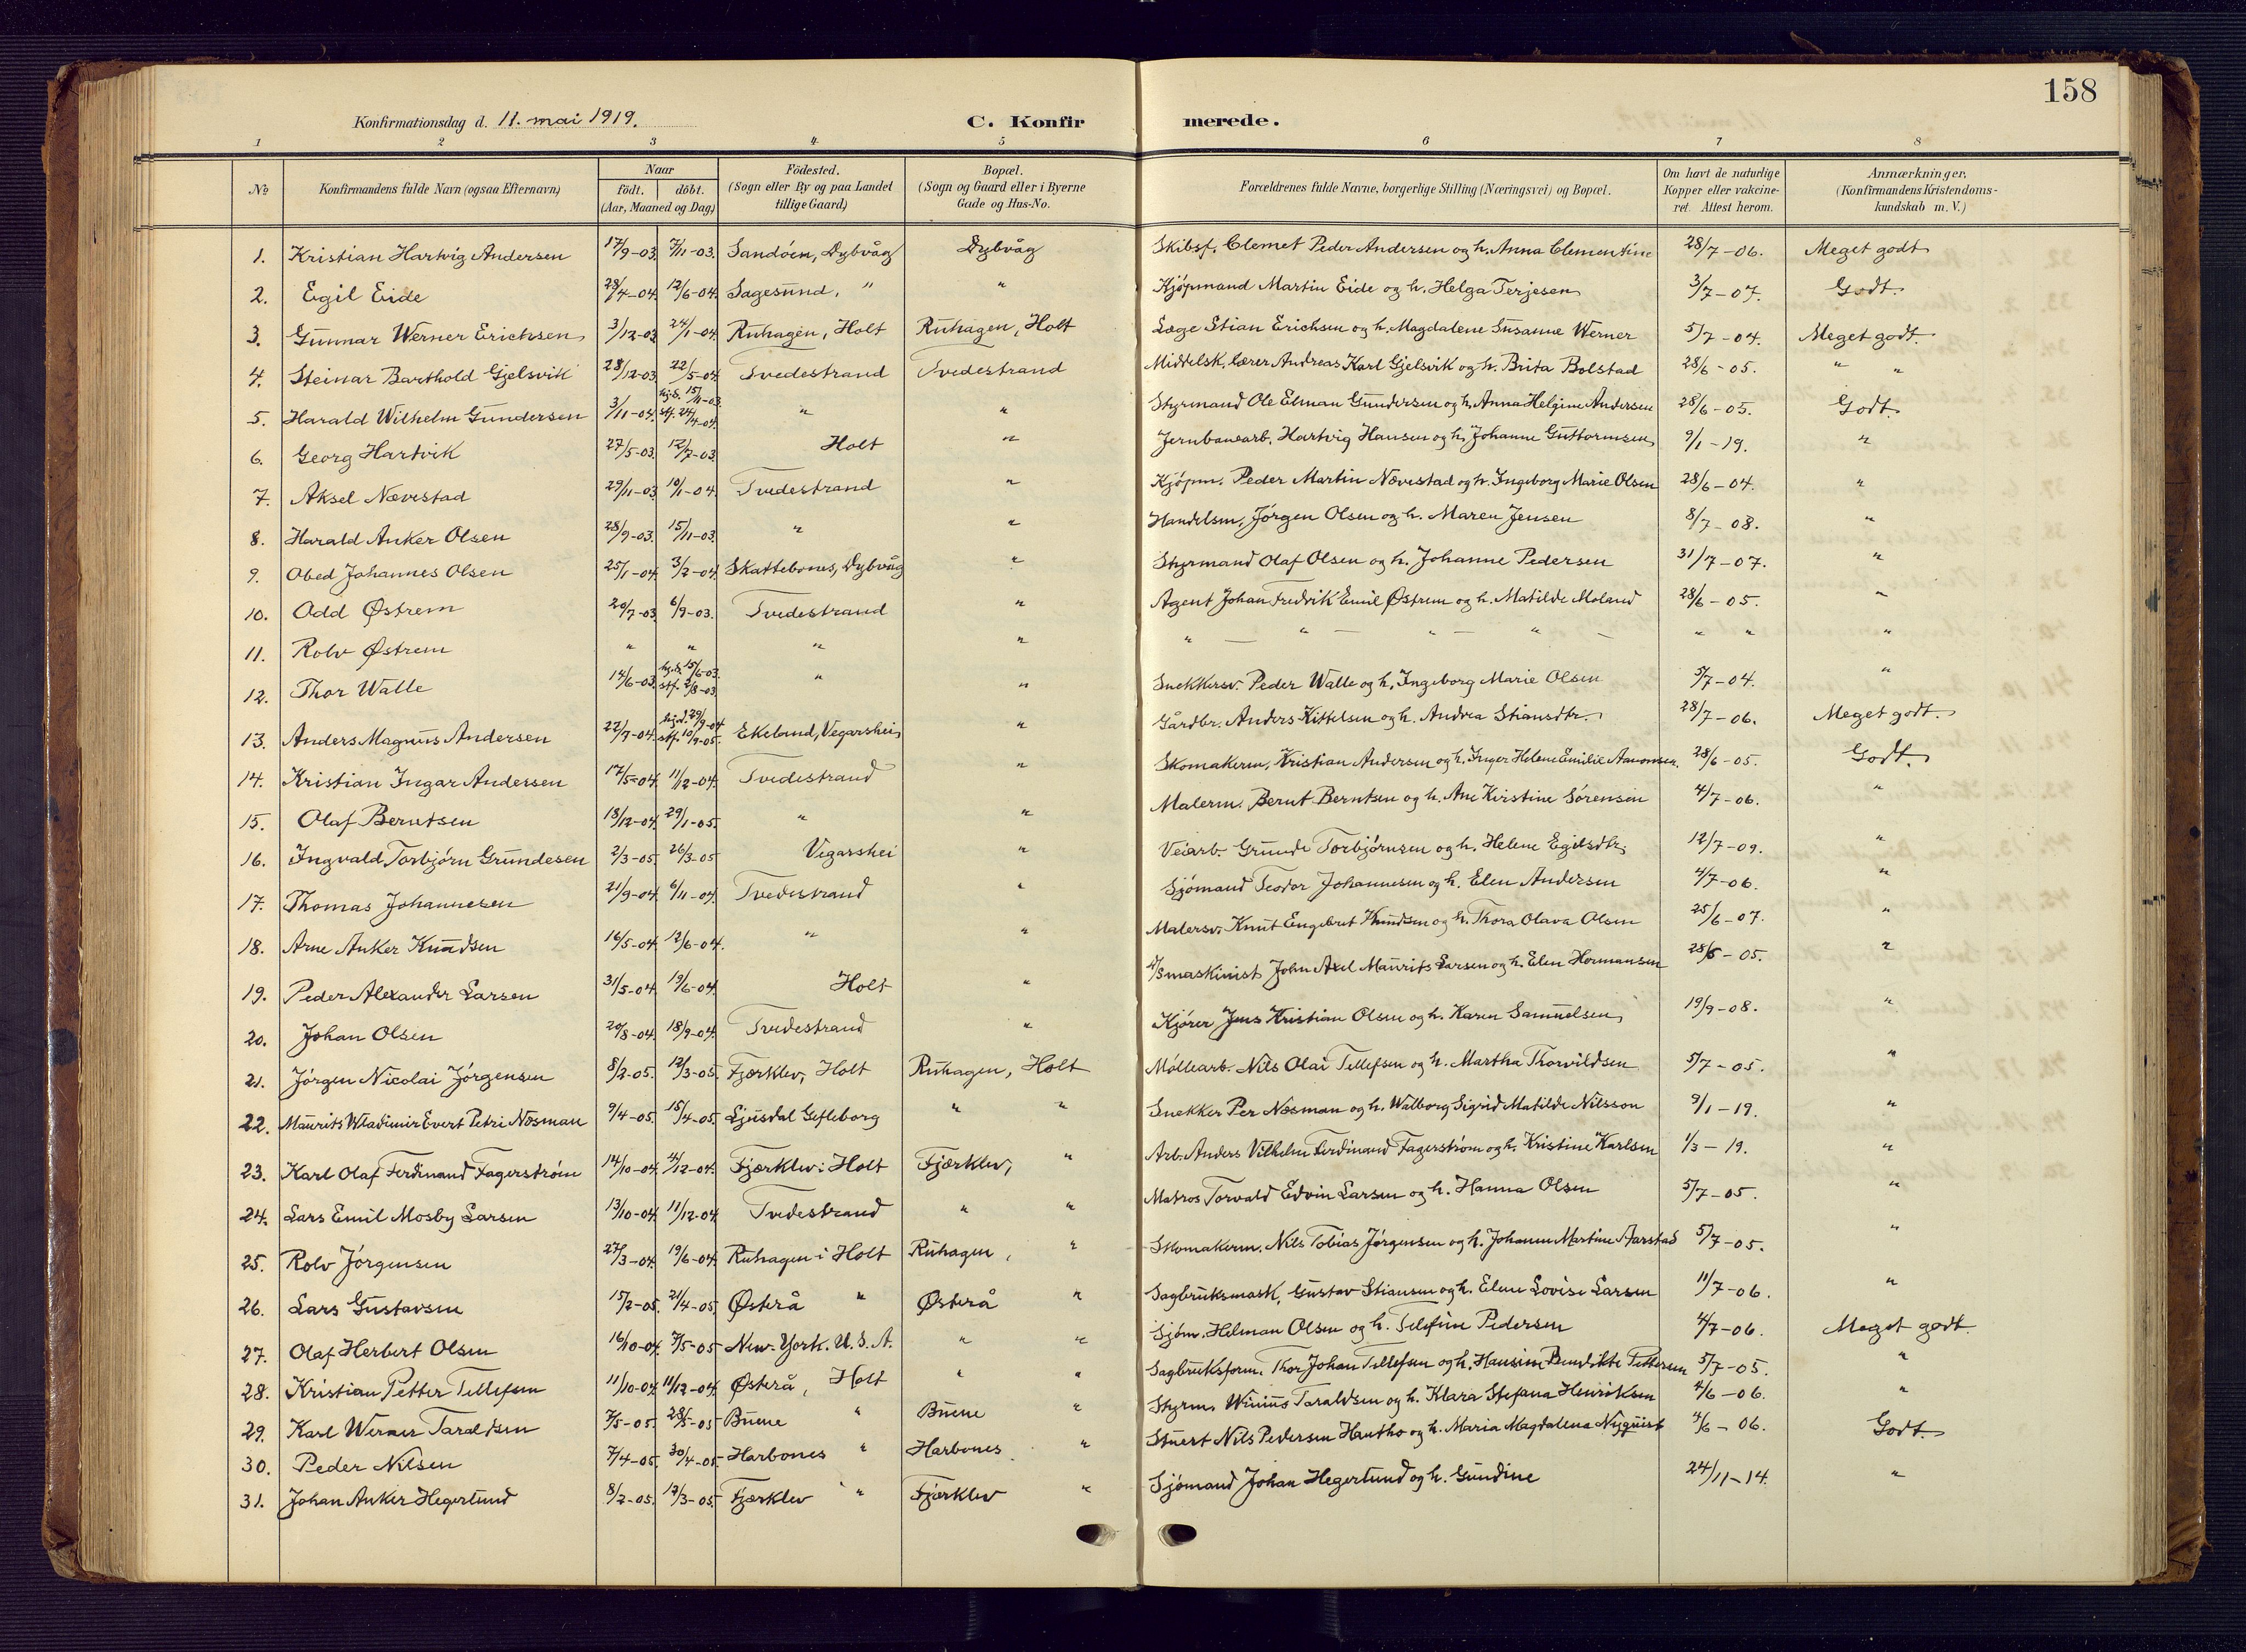 158
Konfirmationsdag d. 11. mai 1919.
C. Konfirmerede.
1 2 3 4 5 6 7 8
№ | Konfirmandens fulde Navn (ogsaa Efternavn) | Naar födt. döbt. (Aar, Maaned og Dag) | Födested. (Sogn eller By og paa Landet tillige Gaard) | Bopæl. (Sogn og Gaard eller i Byerne Gade og Hus-No. | Forældrenes fulde Navne, borgerlige Stilling (Næringsvei) og Bopæl. | Om havt de naturlige Kopper eller vakcineret. Attest herom. | Anmærkninger. (Konfirmandens Kristendomskundskab m. V.)
1. Kristian Hartvig Andersen 17/9-03. 7/11-03. Sandöen, Dybvåg Dybvåg Skibsf. Clemet Peder Andersen og h. Anna Clementine 28/7-06. Meget godt
2. Egil Eide 28/4-04. 12/6-04. Sagesund, " " Kjöpmand Martin Eide og h. Helga Terjesen 3/7-07. Godt.
3. Gunnar Werner Erichsen 3/12-03 24/1-04. Ruhagen, Holt Ruhagen, Holt Læge Stian Erichsen og h. Magdalene Susanne Werner 5/7-04. Meget godt.
4. Steinar Barthold Gjelsvik 28/12-03. 22/5-04. Tvedestrand Tvedestrand Middelsk. lærer Andreas Karl Gjelsvik og h. Brita Bolstad 28/6-05. " "
5. Harald Wilhelm Gundersen 3/11-04. hj.d. 15/11-03. stf. 24/4-04. " " Styrmand Ole Elman Gundersen og h. Anna Helgine Andersen 28/6-05. Godt.
6. Georg Hartvik 27/5-03. 12/7-03. Holt " Jernbanearb. Hartvig Hansen og h. Johanne Guttormsen 9/1-19. "
7. Aksel Nævestad 29/11-03. 10/1-04. Tvedestrand " Kjöpm. Peder Martin Nævestad og h. Ingeborg Marie Olsen 28/6-04. "
8. Harald Anker Olsen 28/9-03. 15/11-03. " " Handelsm. Jörgen Olsen og h. Maren Jensen 8/7-08. "
9. Obed Johannes Olsen 25/1-04. 3/2-04. Skattebones, Dybvåg " Styrmand Olaf Olsen og h. Johanne Pedersen 31/7-07. "
10. Odd Østrem 20/7-03. 6/9-03. Tvedestrand " Agent Johan Fredrik Emil Østrem og h. Matilde Moland 28/6-05. "
11. Rolv Østrem " " " " " — " — " — " — " " "
12. Thor Walle 14/6-03. hj.d. 15/6-03. stf. 2/8-03 " " Snekkersv. Peder Walle og h. Ingeborg Marie Olsen 5/7-04. "
13. Anders Magnus Andersen 22/7-04. hjd. 29/9-04 stf. 10/9-05. Ekeland, Vegarshei " Gårdbr. Anders Kittelsen og h. Andrea Stiansdtr. 28/7-06. Meget godt.
14. Kristian Ingar Andersen 17/5-04. 11/12-04. Tvedestrand " Skomakerm. Kristian Andersen og h. Inger Helene Emilie Aanonsen. 28/6-05. Godt.
15. Olaf Berntsen 18/12-04. 29/1-05. " " Malerm. Bernt Berntsen og h. Ane Kirstine Sörensen 4/7-06. "
16. Ingvald Torbjörn Grundesen 2/3-05. 26/3-05 Vegarshei " Veiarb. Grunde Torbjörnsen og h. Helene Egilsdtr. 12/7-09. "
17. Thomas Johannesen 21/9-04. 6/11-04. Tvedestrand " Sjömand Teodor Johannesen og h. Elen Andersen 4/7-06. "
18. Arne Anker Knudsen 16/5-04. 12/6-04. " " Malersv. Knut Engebret Knudsen og h. Thora Olava Olsen 25/6-07. "
19. Peder Alexander Larsen 31/5-04. 19/6-04. Holt " D/Smaskinist John Axel Maurits Larsen og h. Elen Hermansen 28/6-05. "
20. Johan Olsen 20/8-04. 18/9-04. Tvedestrand " Kjörer Jens Kristian Olsen og h. Karen Samuelsen 19/9-08. "
21. Jörgen Nicolai Jörgensen 8/2-05. 12/3-05. Fjærklev, Holt Ruhagen, Holt Möllearb. Nils Olai Tellefsen og h. Martha Thorvildsen 5/7-05. "
22. Maurits Wladimir Evert Petri Nosman 9/4-05. 15/4-05. Ljusdal Gefleborg " " Snekker Per Nosman og h. Walborg Sigrid Matilde Nilsson 9/1-19. "
23. Karl Olaf Ferdinand Fagerström 14/10-04. 4/12-04. Fjærklev i Holt Fjærklev, " Arb. Anders Vilhelm Ferdinand Fagerström og h. Kristine Karlsen 1/3-19. "
24. Lars Emil Mosby Larsen 13/10-04. 11/12-04. Tvedestrand " " Matros Torvald Edvin Larsen og h. Hanna Olsen 5/7-05. "
25. Rolv Jörgensen 27/3-04. 19/6-04. Ruhagen i Holt Ruhagen, " Skomakerm. Nils Tobias Jörgensen og h. Johanne Martine Aarstad 5/7-05. "
26. Lars Gustavsen 15/2-05. 21/4-05. Østerå " Østerå " Sagbruksmask. Gustav Stiansen og h. Elene Lovise Larsen 11/7-06. "
27. Olaf Herbert Olsen 16/10-04. 7/5-05 New-York. U.S.A. " " Sjöm. Helman Olsen og h. Telefine Pedersen 4/7-06. Meget godt.
28. Kristian Petter Tellefsen 11/10-04. 11/12-04. Østerå, Holt " " Sagbruksform. Thor Johan Tellefsen og h. Hansine Bendikte Pettersen 5/7-05. "
29. Karl Werner Taraldsen 7/5-05. 28/5-05 Buene " Buene " Styrm. Taraldsen og h. Klara Stefana Henriksen 4/6-06. "
30. Peder Nilsen 7/4-05. 30/4-05. Harbones " Harbones " Stuert Nils Pedersen Hautho og h. Maria Magdalena Nyquist 4/6-06. Godt.
31. Johan Anker Hegerlund 8/2-05. 12/3-05. Fjærklev " Fjærklev " Sjömand Johan Hegerlund og h. Gundine 24/11-14. "